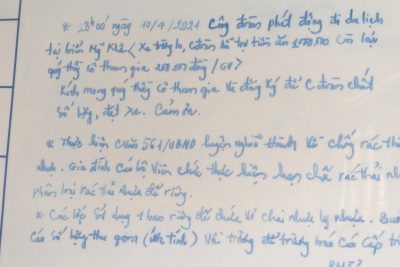 * 23h00 ngày 10/4/2021 Công đoàn phát động đi du lịch
tại biển Mỹ Khê < Xe trường lo, cđoàn hỗ trợ tiền ăn 100.000 Còn lại
quý thầy cô tham gia 200.000 đồng / GV >
Kính mong quý thầy cô tham gia và đăng ký để C đoàn chốt
số lượng, đặt xe. Cảm ơn.
* Thực hiện Công 561/UBND huyện nghĩa Hành Về chống rác thải
nhựa. Gia đình Cán bộ Viên chức thực hiện hạn chế rác thải
phân loại rác thải nhựa để riêng.
* Các lớp sử dụng 1 bao riêng để chứa vỏ chai nhựa ly nhựa.
Báo số lượng thu gom ( ước tính ) Về trường để trường báo cáo Cấp